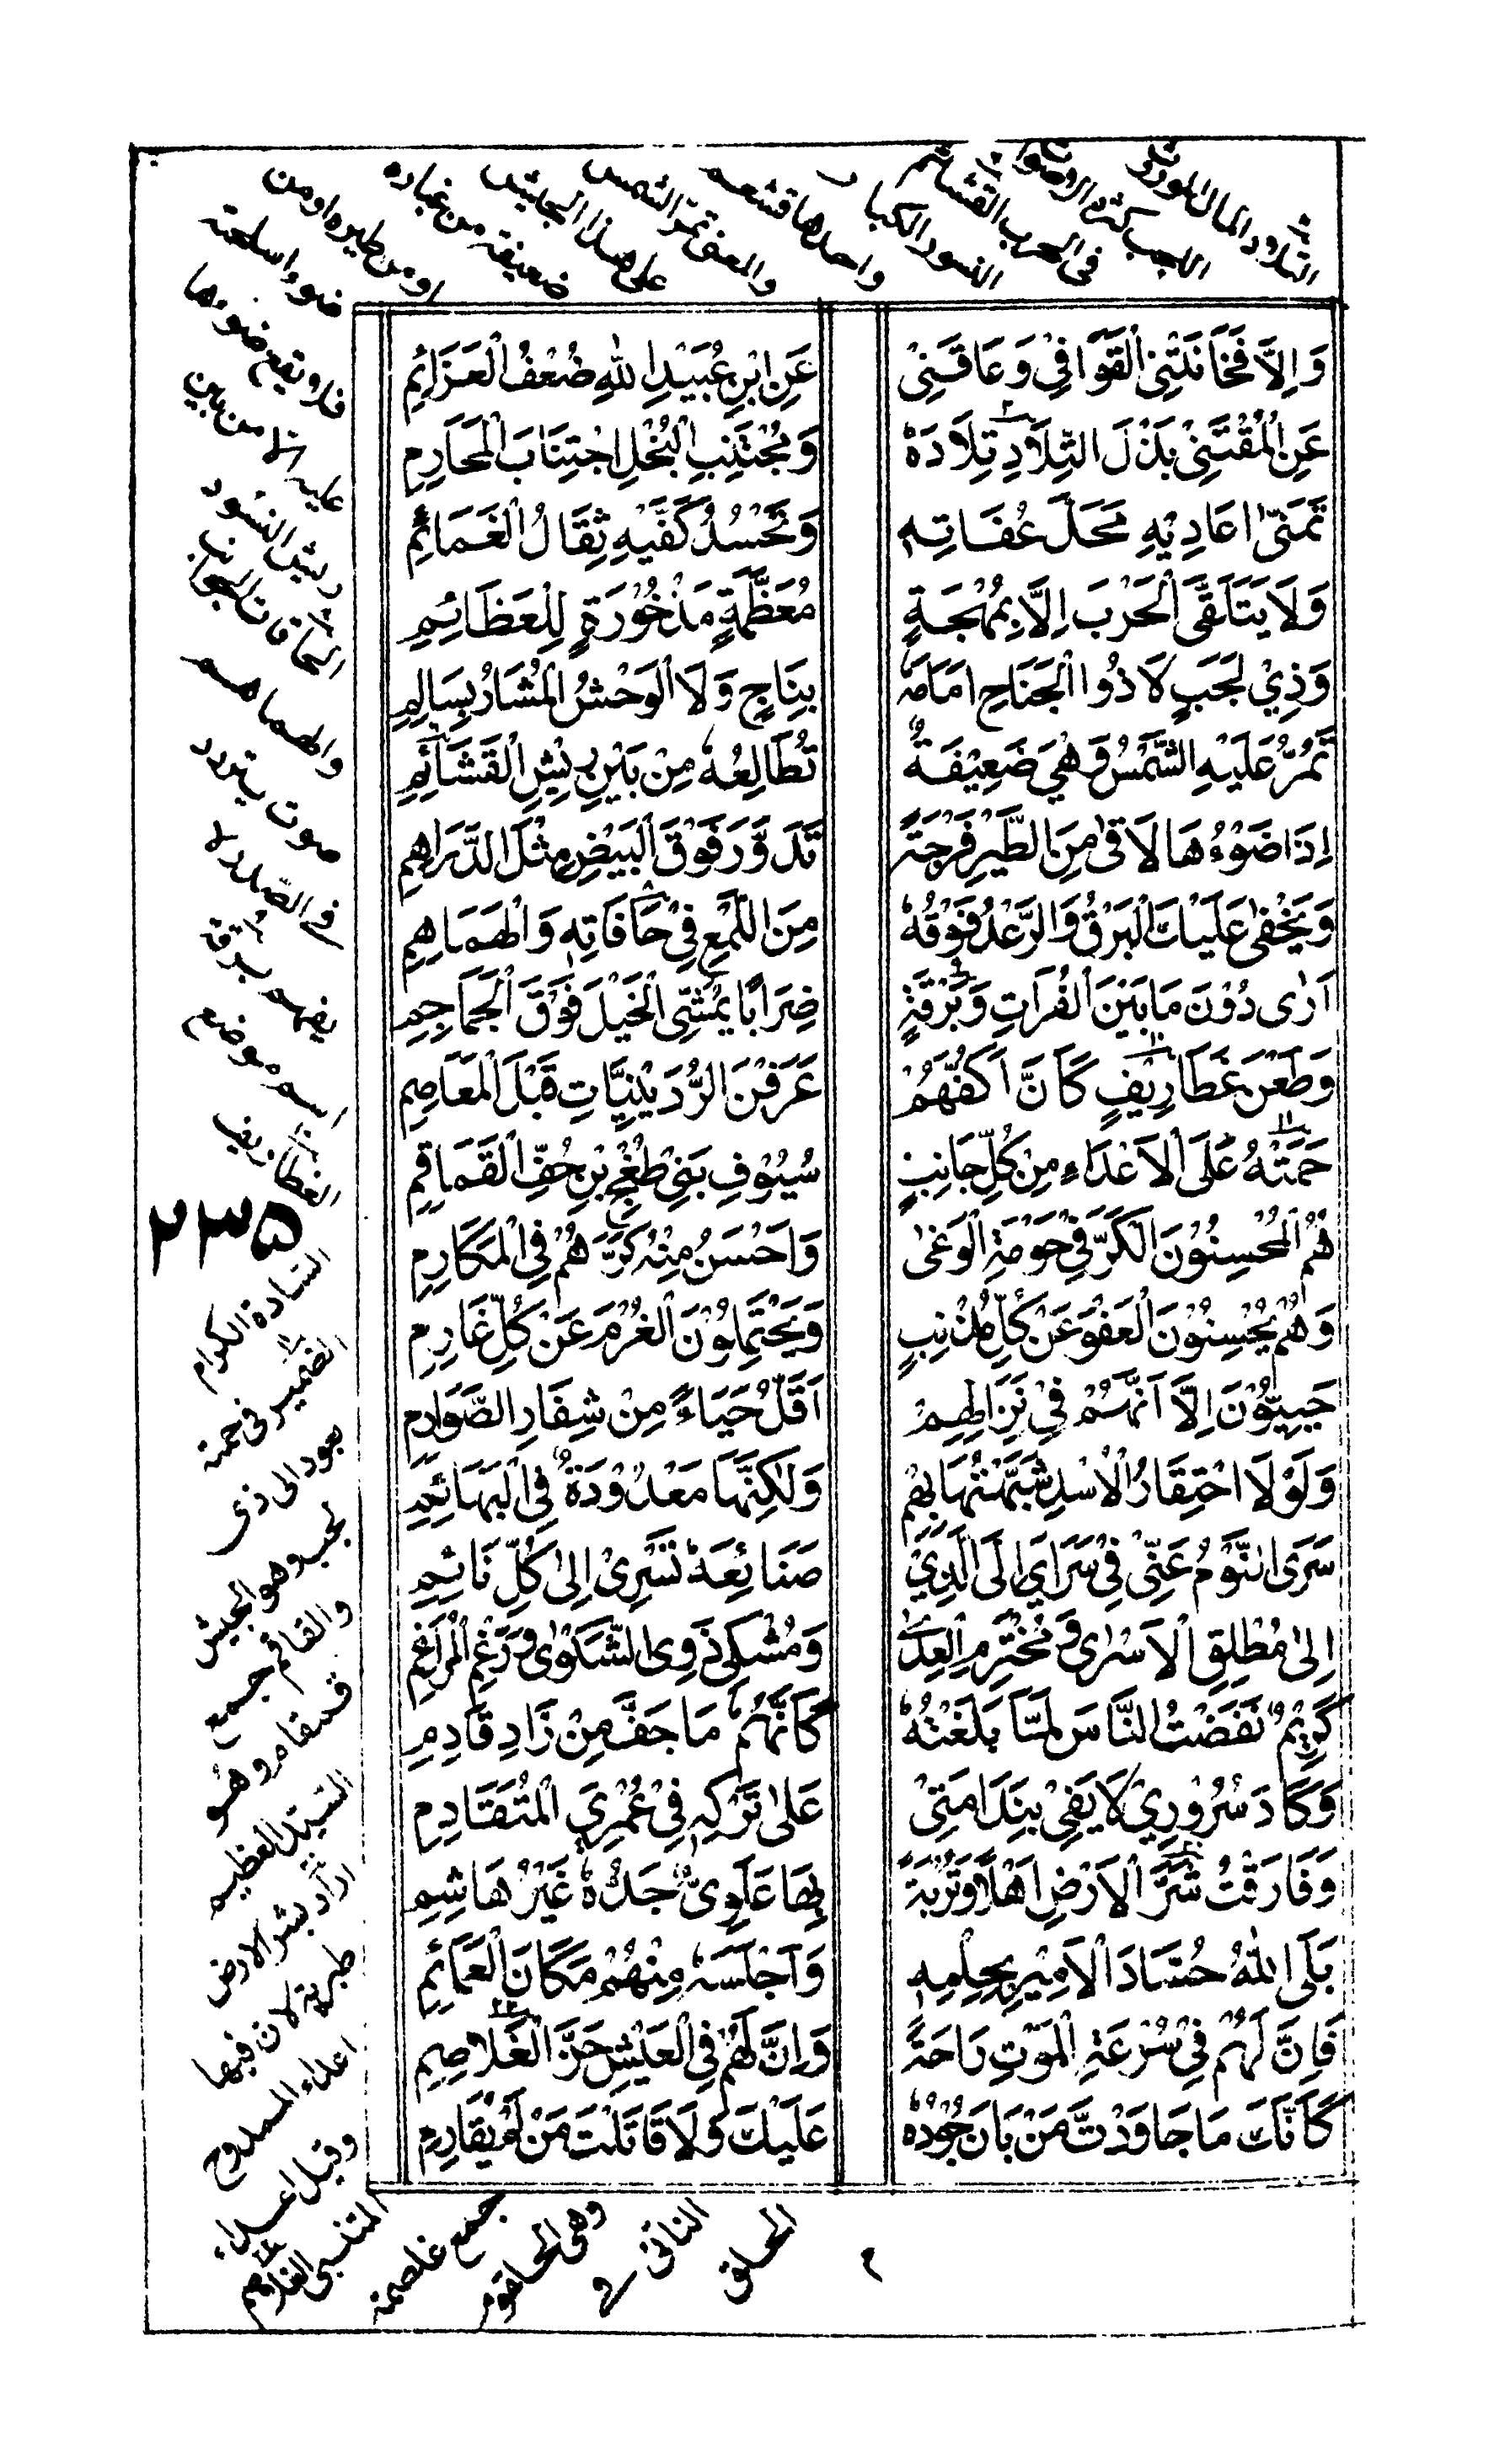 وَاِلَّا فَخَانَتْنِی الْقَوَافِیْ وَعَاقَنِیْ عَنِ ابْنِ عُبَيْدِ اللهِ ضُعْفُ الْعَزَائِمِ
عَنِ الْمُقْتَنِیْ بَذْلَ التِّلَادِ تِلَادَهٗ وَمُجْتَنِبِ الْبُخْلِ اجْتِنَابَ الْمَحَارِمِ
تَمَنّٰی اَعَادِيْهِ مَحَلَّ عُفَاتِهٖ وَتَحْسُدُ كَفَّيْهِ ثِقَالُ الْغَمَائِمِ
وَلَا يَتَلَقَّی الْحَرْبَ اِلَّا بِمُهْجَةٍ مُعَظَّمَةٍ مَذْخُوْرَةٍ لِلْعَظَائِمِ
وَذِیْ لَجَبٍ لَا ذُو الْجَنَاحِ اَمَامَهٗ بِنَاجٍ وَلَا الْوَحْشُ الْمُثَارُ بِسَالِمِ
تَمُرُّ عَلَيْهِ الشَّمْسُ وَهْیَ ضَعِيْفَةٌ تُطَالِعُهٗ مِنْ بَيْنِ رِيْشِ الْقَشَائِمِ
اِذَا ضَوْءُهَا لَاقٰی مِنَ الطَّيْرِ فُرْجَةً تَدَوَّرَ فَوْقَ الْبَيْضِ مِثْلَ الدَّرَاهِمِ
وَيَخْفٰی عَلَيْكَ الْبَرْقُ وَالرَّعْدُ فَوْقَهٗ مِنَ اللَّمْعِ فِیْ حَافَاتِهٖ وَالْهَمَاهِمِ
اَرٰی دُوْنَ مَا بَيْنَ الْفُرَاتِ وَبَرْقَةٍ ضِرَابًا يُمَشِّی الْخَيْلَ فَوْقَ الْجَمَاجِمِ
وَطَعْنَ غَطَارِيْفٍ كَاَنَّ اَكُفَّهُمْ عَرَفْنَ الرُّدَيْنِيَّاتِ قَبْلَ الْمَعَاصِمِ
حَمَتْهُ عَلَی الْاَعْدَاءِ مِنْ كُلِّ جَانِبٍ سُيُوْفِ بَنِیْ طُغْجِ بْنِ جُفِّ الْقَمَاقِمِ
هُمُ الْمُحْسِنُوْنَ الْكَرَّ فِیْ حَوْمَةِ الْوَغٰی وَاَحْسَنُ مِنْهُ كَرُّهُمْ فِی الْمَكَارِمِ
وَهُمْ يُحْسِنُوْنَ الْعَفْوَ عَنْ كُلِّ مُذْنِبٍ وَيَحْتَمِلُوْنَ الْغُرْمَ عَنْ كُلِّ غَارِمِ
حَيِيُّوْنَ اِلَّا اَنَّهُمْ فِیْ نِزَالِهِمْ اَقَلُّ حَيَاءً مِنْ شِفَارِ الصَّوَارِمِ
وَلَوْلَا احْتِقَارُ الْاُسْدِ شَبَّهْتُهَا بِهِمْ وَلٰكِنَّهَا مَعْدُوْدَةٌ فِی الْبَهَائِمِ
سَرَی النَّوْمُ عَنِّیْ فِیْ سُرَایَ اِلَی الَّذِیْ صَنَائِعُهٗ تَسْرِیْ اِلٰی كُلِّ نَائِمِ
اِلٰی مُطْلِقِ الْاَسْرٰی وَمُخْتَرِمِ الْعِدٰی وَمُشْكِی ذَوِی الشَّكْوٰی وَرَغْمِ الْمُرَاغِمِ
كَرِيْمٌ نَفَضْتُ النَّاسَ لَمَّا بَلَغْتُهٗ كَاَنَّهُمْ مَا جَفَّ مِنْ زَادِ قَادِمِ
وَكَادَ سُرُوْرِیْ لَا يَفِیْ بِنَدَامَتِیْ عَلٰی تَرْكِهٖ فِیْ عُمْرِیَ الْمُتَقَادِمِ
وَفَارَقْتُ شَرَّ الْاَرْضِ اَهْلًا وَتُرْبَةً بِهَا عَلَوِیٌّ جَدُّهٗ غَيْرُ هَاشِمِ
بَلَی اللهُ حُسَّادَ الْاَمِيْرِ بِحِلْمِهٖ وَاَجْلَسَهٗ مِنْهُمْ مَكَانَ الْعَمَائِمِ
فَاِنَّ لَهُمْ فِیْ سُرْعَةِ الْمَوْتِ رَاحَةً وَاِنَّ لَهُمْ فِی الْعَيْشِ حَزَّ الْغَلَاصِمِ
كَاَنَّكَ مَا جَاوَدْتَّ مَنْ بَانَ جُوْدُهٗ عَلَيْكَ وَلَا قَاتَلْتَ مَنْ لَمْ يُقَاوِمِ
التلاد المال الموروث
فی الحرب القشاعم
النسور الكبار
واحدها قشعم
والمعنی تمر الشمس
علی هذا الجيش
ضعيفة من غباره
او من طيره او من
ضوء اسلحته
فلا يقع ضوءها
عليه الا من بين
ريش النسور
الحافات الجوانب
والهماهم
صوت يتردد
فی الصدر لا
يفهم برقة
اسم موضع
الغطاريف
٢٣٥
السادة الكرام
الضمير فی حمته
يعود الی ذی
لجب وهو الجيش
والقماقم جمع
قمقام وهو
السيد العظيم
اراد بشر الارض
طبرية لان فيها
اعداء الممدوح
وقيل اعداء
المتنبی الغلاصم
جمع غلصمة
وهی الحلقوم
الناتی فی
الحلق